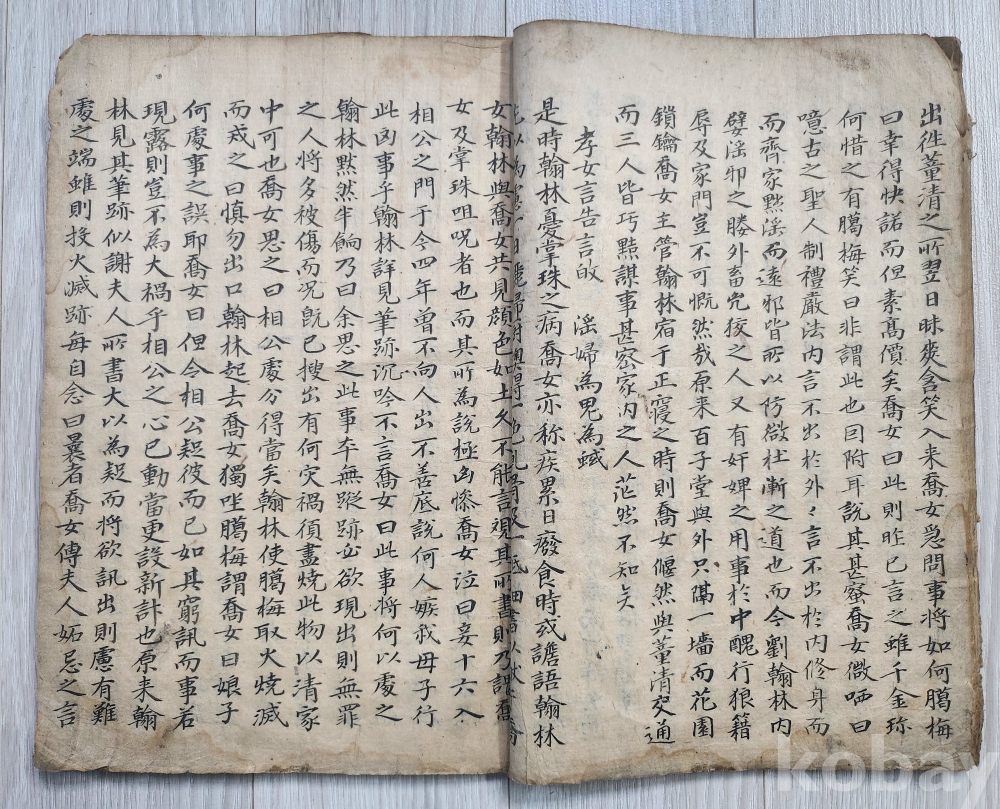 出往董清之所翌日昧爽含笑入来喬女急問事将如何臈梅
曰幸得快諾而但素髙價矣喬女曰此則昨已言之雖千金珎
何惜之有臈梅笑曰非謂此也曰附耳說其甚蜜喬女微哂曰
噫古之聖人制禮嚴法内言不出於外々言不出於内修身而
而齊家黜淫而遠邪皆所以防微杜漸之道也而今劉翰林内
嬖淫卯之媵外畜兇狡之人又有奸婢之用事於中醜行狼籍
辱及家門豈不可慨然㢤原来百子堂與外只隔一墻而花園
鎖鑰喬女主管翰林宿于正寢之時則喬女偃然與董清交通
而三人皆巧黠謀事甚密家内之人茫然不知矣
孝女言告言 淫婦為鬼為蜮
是時翰林憂掌珠之病喬女亦称疾累日癈食時或譫語翰林
女翰林與喬女共見顔色如土久不能言視其所書則乃謂喬
女及掌珠咀呪者也而其所為說極凶慘喬女泣曰妾十六入
相公之門于今四年曾不向人出不善底說何人嫉我母子行
此凶事乎翰林詳見筆跡沉吟不言喬女曰此事将何以處之
翰林黙然半餉乃曰余思之此事夲無蹤跡欲現出則無罪
之人将多被傷而况既已搜出有何灾禍湏盡燒此物以清家
中可也喬女思之曰相公處分得當矣翰林使臈梅取火燒滅
而戒之曰慎勿出口翰林起去喬女獨坐臈梅謂喬女曰娘子
何處事之誤耶喬女曰但令相公疑彼而已如其窮訊而事若
現露則豈不為大禍乎相公之心已動當更設新計也原来翰
林見其筆跡似謝夫人所書大以為疑而将欲訊出則慮有難
處之端雖則投火滅跡每自念曰曩者喬女傳夫人妬忌之言
kobay